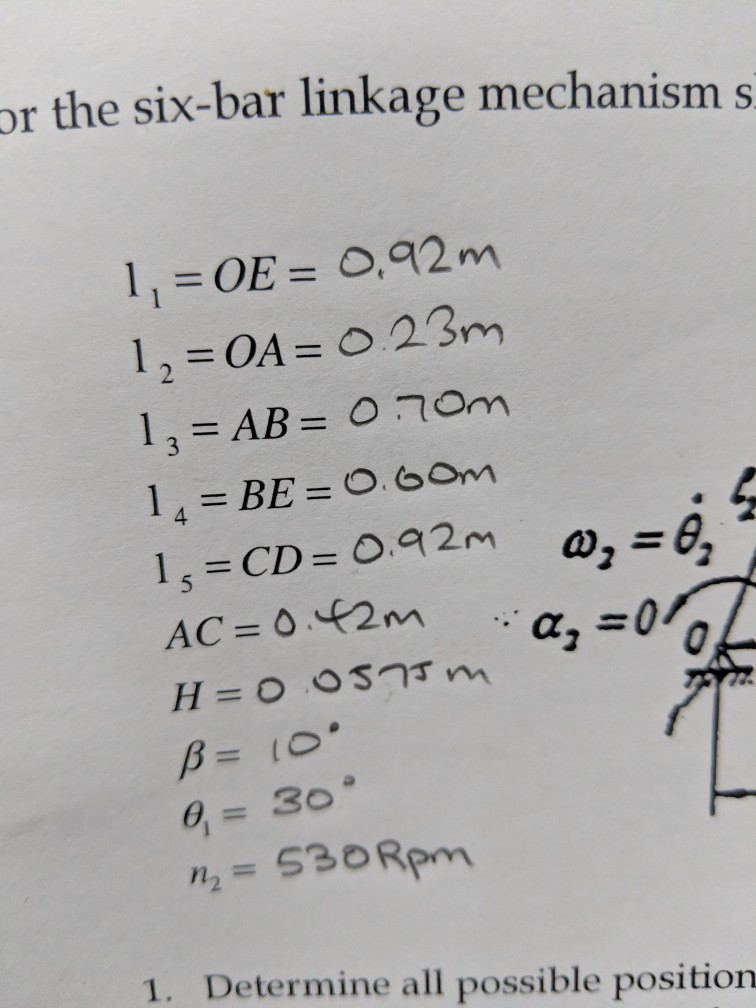 or the six-bar linkage mechanism s
l₁ = OE = 0.92m
l₂ = OA = 0.23m
l₃ = AB = 0.70m
l₄ = BE = 0.60m
l₅ = CD = 0.92m
ω₂ = θ̇₂
AC = 0.42m
∵ α₂ = 0
O
H = 0.0575m
β = 10°
θ₁ = 30°
n₂ = 530 Rpm
1. Determine all possible position